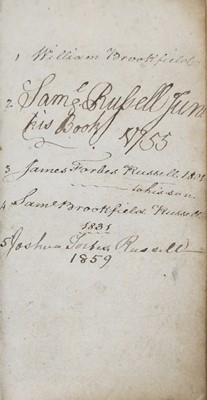 1 William Brookfield
2 Saml Russell Junr
his Book 1755
3 James Forbes Russell 1801
to his son
4 Saml Brookfield Russell
1831
5 Joshua Forbes Russell
1859